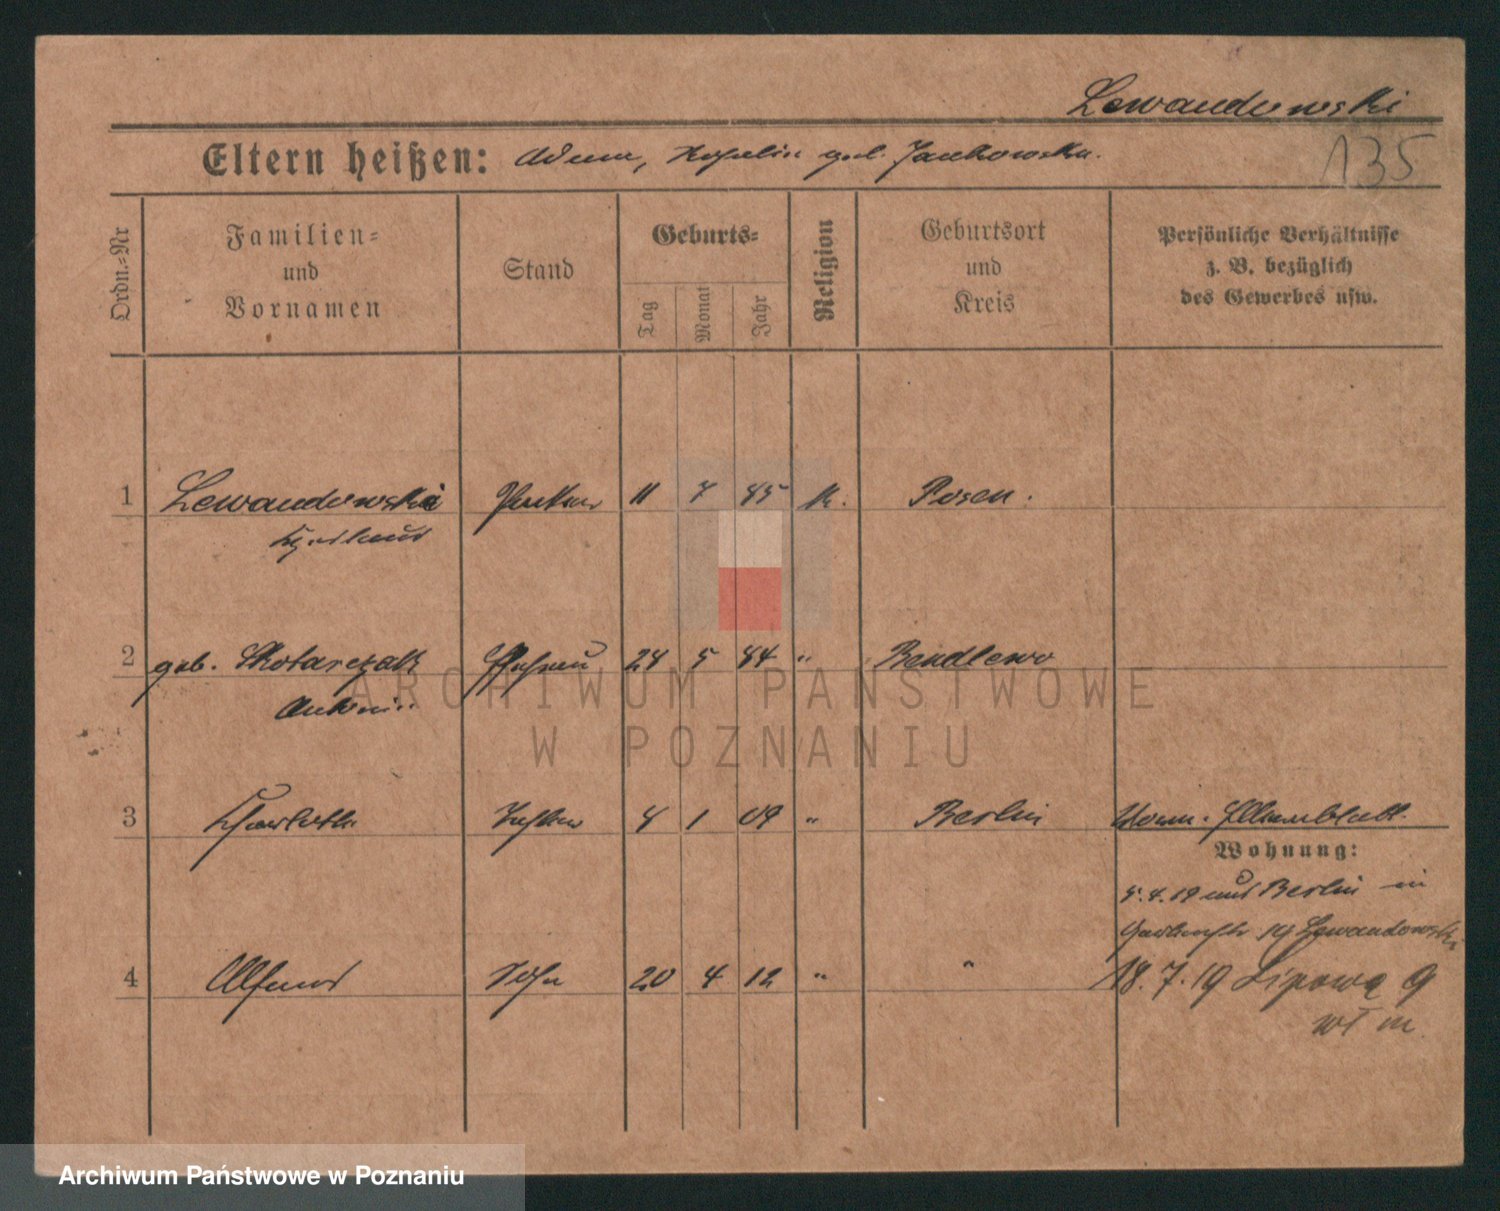 Lewandowski
135
Eltern heißen: Adam, geb. Jankowska.
Ordn.-Nr
Familien-
und
Vornamen
Stand
Geburts-
Tag
Monat
Jahr
Religion
Geburtsort
und
Kreis
Persönliche Verhältnisse
z. B. bezüglich
des Gewerbes usw.
1 Lewandowski 11 7 85 K. Posen.
2 geb. Skotarczak Ehefrau 24 5 84 " Bendlewo
Antonie
ARCHIWUM PAŃSTWOWE
W POZNANIU
3 Tochter 4 1 09 " Berlin
Wohnung:
5.4.19 aus Berlin in
19 Lewandowski
4 Alfons Sohn 20 4 12 " "
18.7.19 Lipowa 9
wł m
Archiwum Państwowe w Poznaniu